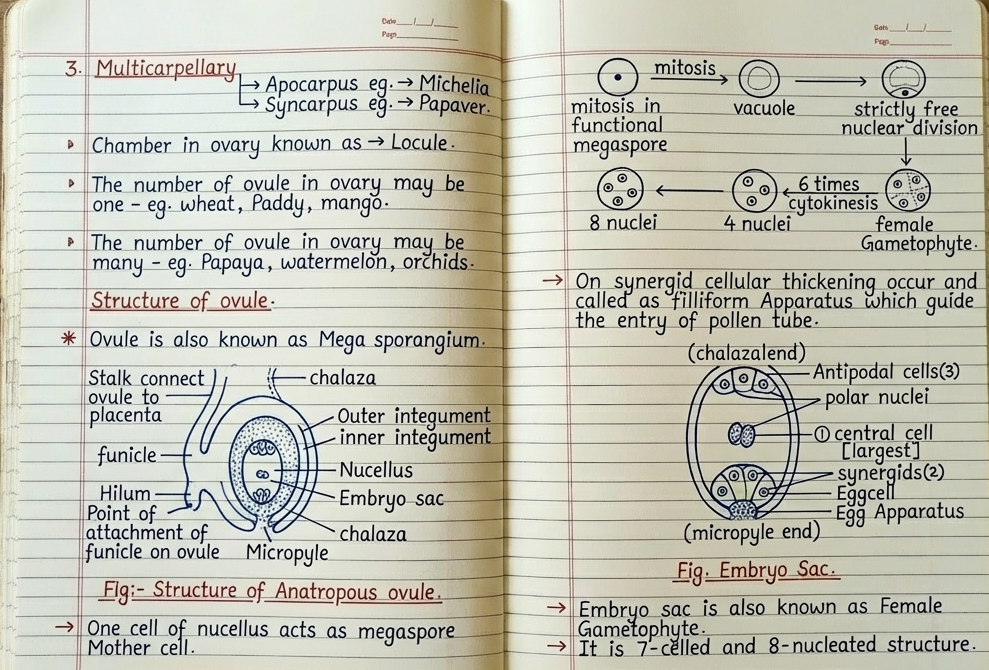 Date___/___/___
Page___________
3. Multicarpellary
→ Apocarpus eg. → Michelia
→ Syncarpus eg. → Papaver.
Chamber in ovary known as → Locule.
The number of ovule in ovary may be
one - eg. wheat, Paddy, mango.
The number of ovule in ovary may be
many - eg. Papaya, watermelon, orchids.
Structure of ovule.
* Ovule is also known as Mega sporangium.
Stalk connect
ovule to
placenta
chalaza
Outer integument
inner integument
funicle
Nucellus
Hilum
Embryo sac
Point of
attachment of
funicle on ovule
chalaza
Micropyle
Fig:- Structure of Anatropous ovule.
→ One cell of nucellus acts as megaspore
Mother cell.
mitosis
mitosis in
functional
megaspore
vacuole
strictly free
nuclear division
8 nuclei
4 nuclei
6 times
cytokinesis
female
Gametophyte.
→ On synergid cellular thickening occur and
called as filliform Apparatus which guide
the entry of pollen tube.
(chalazalend)
Antipodal cells(3)
polar nuclei
① central cell
[largest]
synergids(2)
Eggcell
Egg Apparatus
(micropyle end)
Fig. Embryo Sac.
→ Embryo sac is also known as Female
Gametophyte.
→ It is 7-celled and 8-nucleated structure.